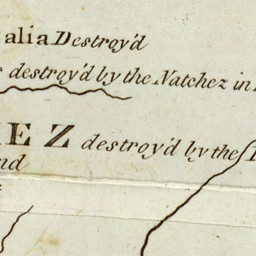 alia Destroy'd
destroy'd by the Natchez in
EZ destroy'd by the
nd